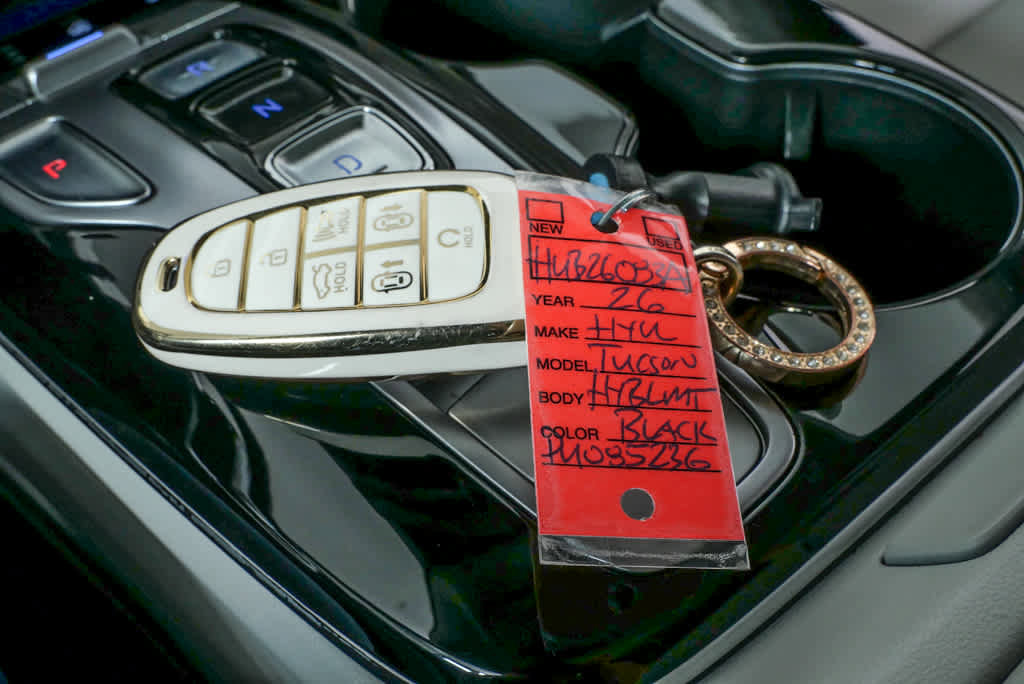 R
N
D
P
HOLD
HOLD
HOLD
NEW USED
HUB26093A
YEAR 26
MAKE HYU
MODEL TUCSON
BODY HYBLMT
COLOR BLACK